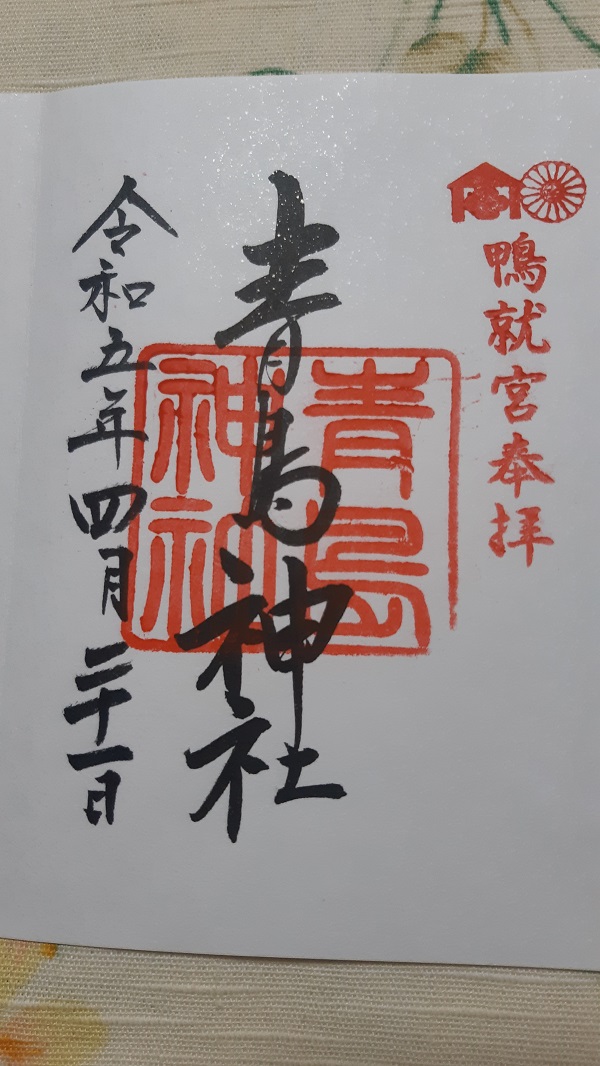 鴨就宮奉拝
青島神社
青島神社
令和五年四月二十一日